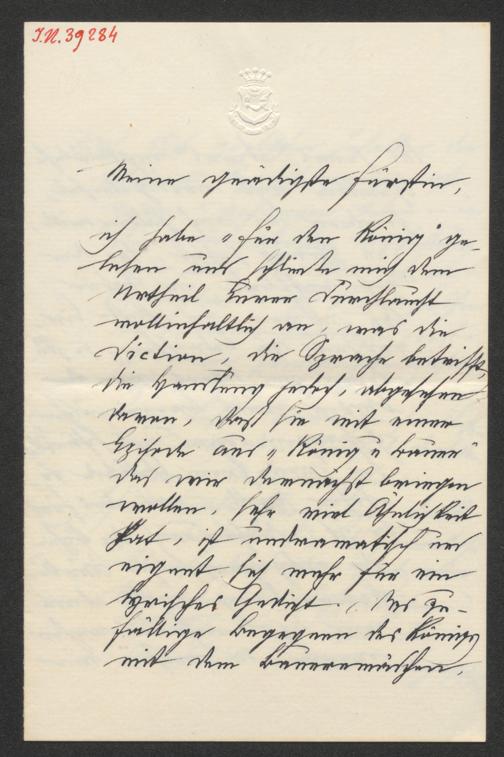 I.N. 39284
Meine gnädigste Fürstin,
ich habe „Für den König" ge-
lesen und schließe mich dem
Urtheil Eurer Durchlaucht
vollinhaltlich an, was die
Diction, die Sprache betrifft,
die Handlung jedoch, abgesehen
davon, daß sie mit einer
Episode aus „König u Bauer"
das wir demnächst bringen
wollen, sehr viel Ähnlichkeit
hat, ist undramatisch und
eignet sich mehr für ein
lyrisches Gedicht. Das zu-
fällige Begegnen des Königs
mit dem Bauernmädchen,